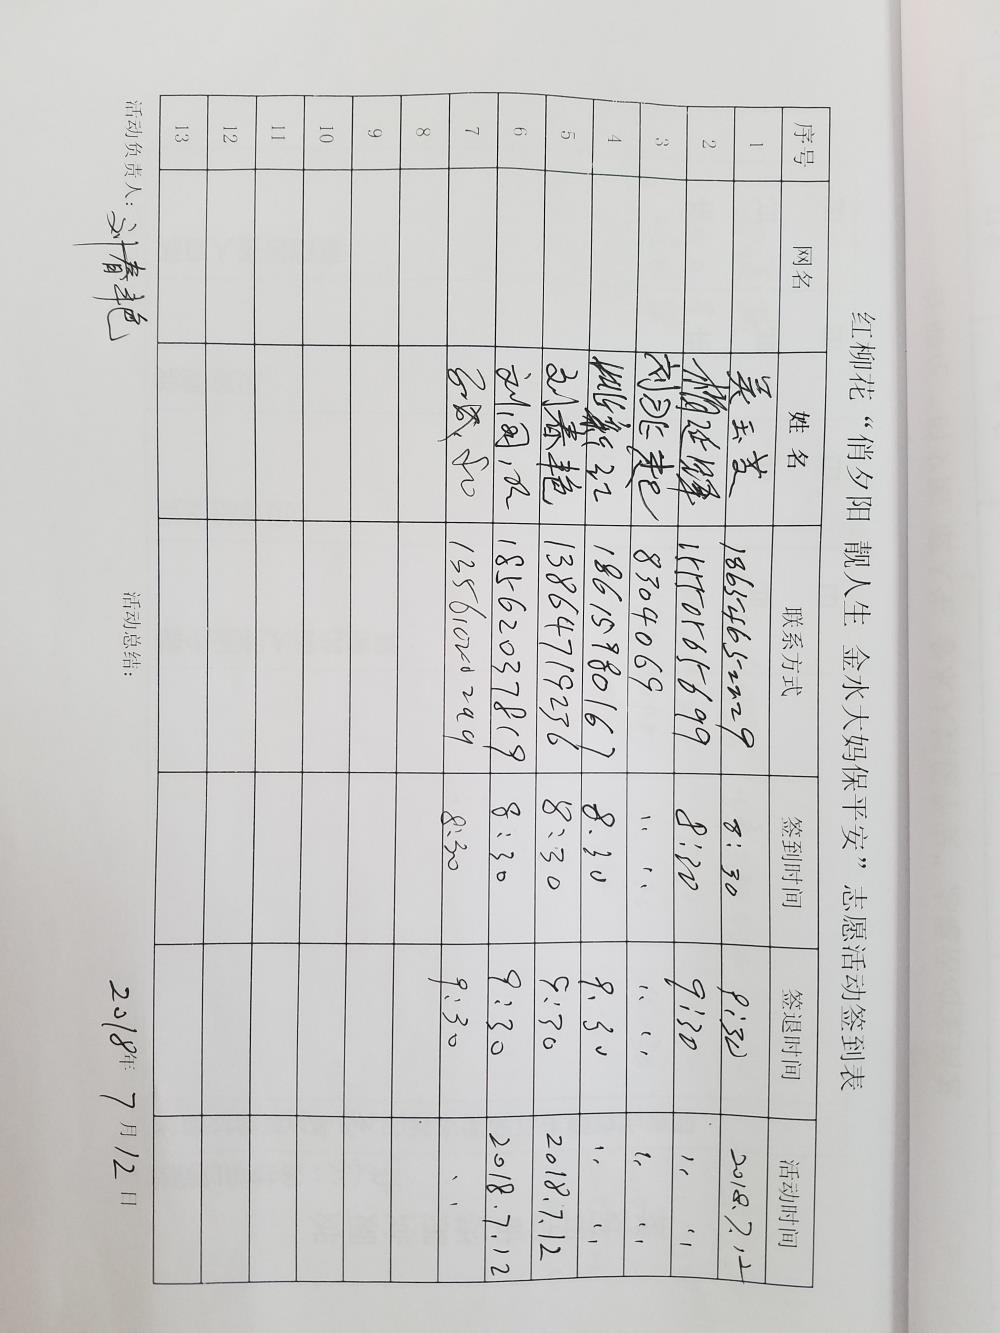 红柳花“俏夕阳 靓人生 金水大妈保平安”志愿活动签到表
序号 网名 姓名 联系方式 签到时间 签退时间 活动时间
1 吴玉芝 8:30 9:30 2018.7.12
2 8:30 9:30 〃 〃
3 8304069 〃 〃 〃 〃 〃 〃
4 18615980167 8.30 9.30 〃 〃
5 刘春艳 13864719236 8:30 9:30 2018.7.12
6 18562037819 8:30 9:30 2018.7.12
7 8:30 9:30 〃
8
9
10
11
12
13
活动负责人: 刘春艳 活动总结: 2018年7月12日